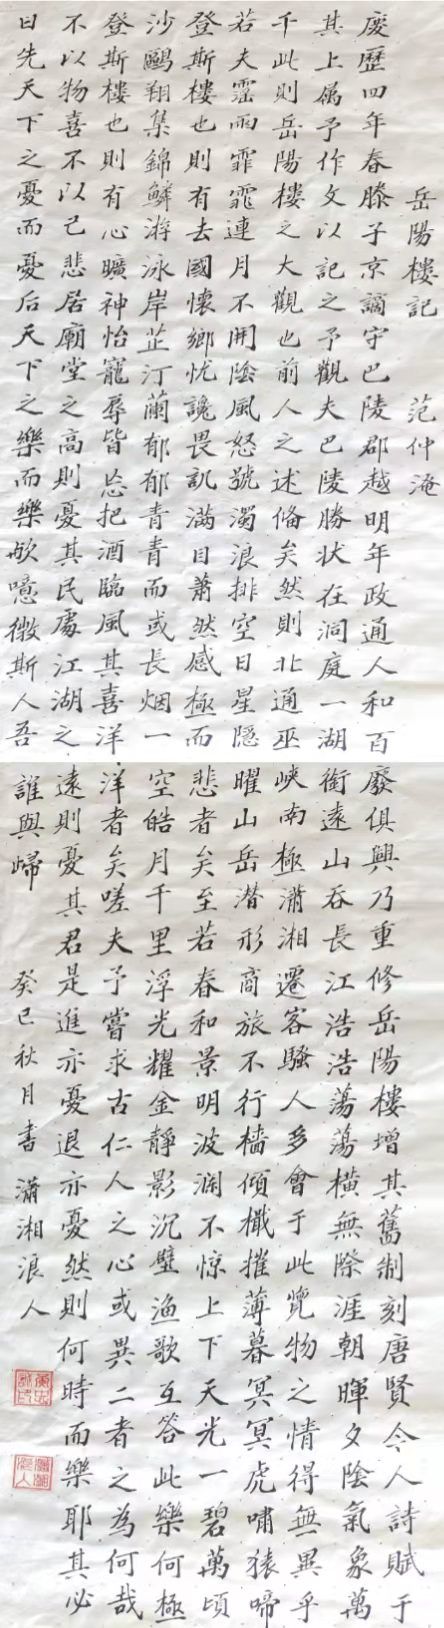 岳陽樓記 范仲淹
慶歷四年春滕子京謫守巴陵郡越明年政通人和百廢俱興乃重修岳陽樓增其舊制刻唐賢今人詩賦于
其上屬予作文以記之予觀夫巴陵勝狀在洞庭一湖銜遠山吞長江浩浩蕩蕩橫無際涯朝暉夕陰氣象萬
千此則岳陽樓之大觀也前人之述備矣然則北通巫峽南極瀟湘遷客騷人多會于此覽物之情得無異乎
若夫霪雨霏霏連月不開陰風怒號濁浪排空日星隱曜山岳潜形商旅不行檣傾檝摧薄暮冥冥虎嘯猿啼
登斯樓也則有去國懷鄉忧讒畏訊滿目蕭然感極而悲者矣至若春和景明波瀾不惊上下天光一碧萬頃
沙鷗翔集錦鱗游泳岸芷汀蘭郁郁青青而或長烟一空皓月千里浮光耀金靜影沉璧渔歌互答此樂何極
登斯樓也則有心曠神怡寵辱皆忘把酒臨風其喜洋洋者矣嗟夫予嘗求古仁人之心或異二者之為何哉
不以物喜不以己悲居廟堂之高則憂其民處江湖之遠則憂其君是進亦憂退亦憂然則何時而樂耶其必
曰先天下之憂而憂后天下之樂而樂欤噫微斯人吾誰與歸 癸巳秋月書 瀟湘浪人
瀟湘浪人